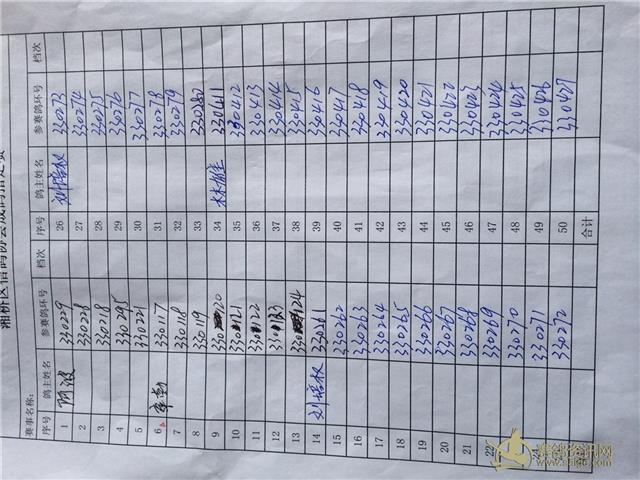 赛事名称:
序号 鸽主姓名 参赛鸽环号 档次 序号 鸽主姓名 参赛鸽环号 档次
1 阿波 330229 26 刘培权 330273
2 330228 27 330274
3 330218 28 330275
4 330295 29 330276
5 330221 30 330277
6 330117 31 330278
7 330118 32 330279
8 330119 33 330280
9 330120 34 林雄 330411
10 330121 35 330412
11 330122 36 330413
12 330123 37 330414
13 330124 38 330415
14 刘培权 330261 39 330416
15 330262 40 330417
16 330263 41 330418
17 330264 42 330419
18 330265 43 330420
19 330266 44 330421
20 330267 45 330422
21 330268 46 330423
22 330269 47 330424
330270 48 330425
330271 49 330426
330272 50 330427
合计